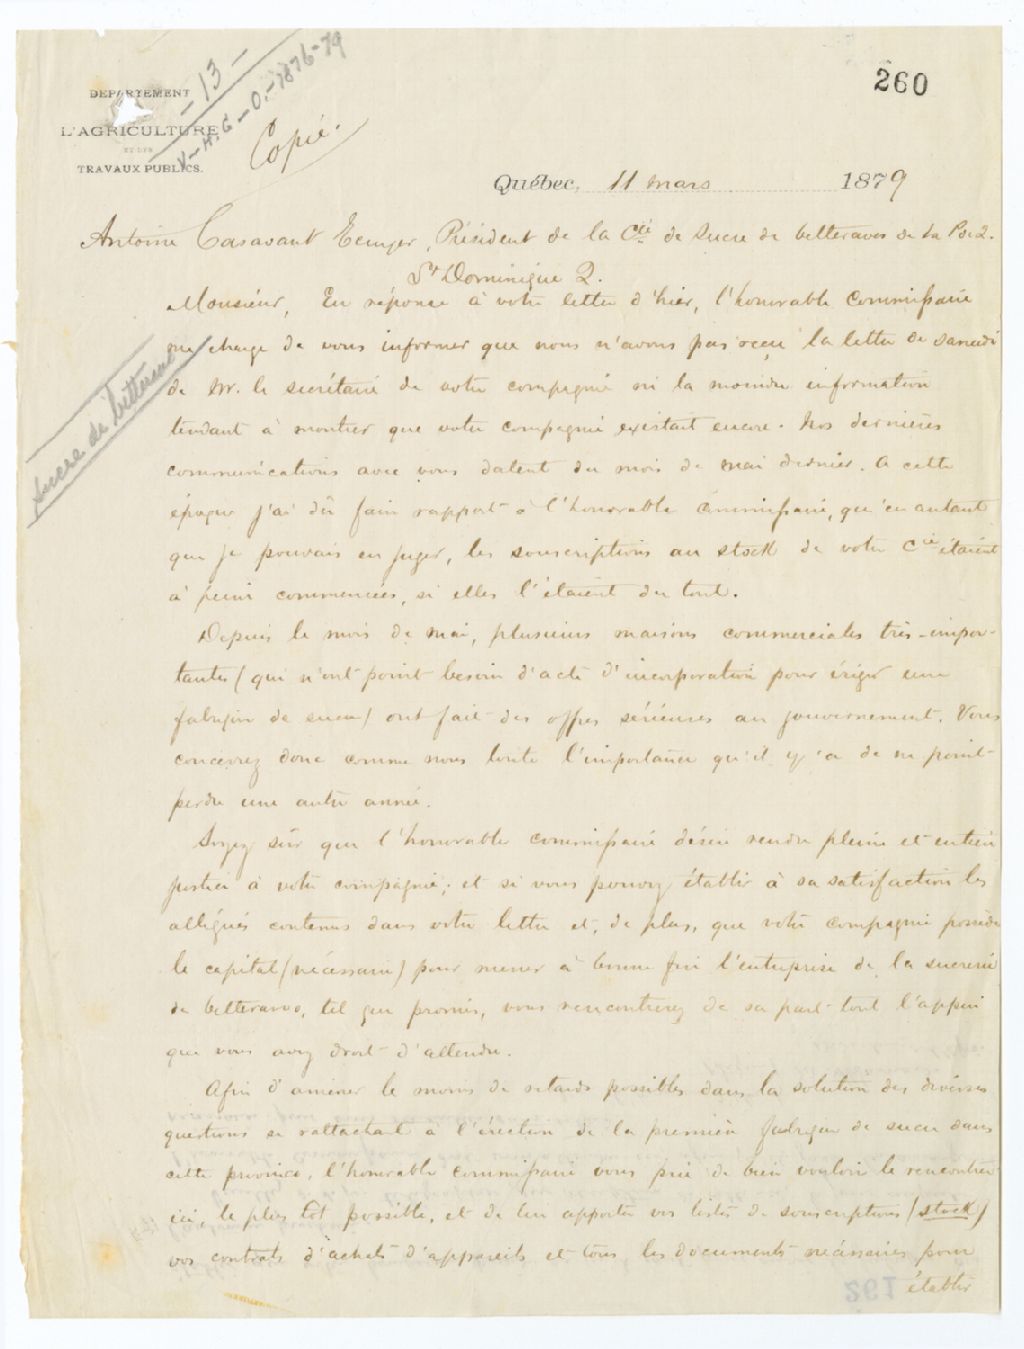 260
DEPARTEMENT
L'AGRICULTURE
ET DES
TRAVAUX PUBLICS.
- 13 -
V-H.G-O.-1876-79
Copie.
Québec, 11 mars 1879
Antoine Casavant Ecuyer, Président de la Cie de Sucre de betteraves de la P. de Q.
St Dominique Q.
Monsieur, En réponse à votre lettre d'hier, l'honorable Commissaire
me charge de vous informer que nous n'avons pas reçu la lettre de samedi
de Mr. le secrétaire de votre compagnie ni la moindre information
tendant à montrer que votre compagnie existait encore. Nos dernières
communications avec vous datent du mois de mai dernier. A cette
époque j'ai dû faire rapport à l'honorable Commissaire, qu'en autant
que je pouvais en juger, les souscriptions au stock de votre Cie étaient
à peine commencées, si elles l'étaient du tout.
Depuis le mois de mai, plusieurs maisons commerciales très-impor-
tantes (qui n'ont point besoin d'acte d'incorporation pour ériger une
fabrique de sucre) ont fait des offres sérieuses au gouvernement. Vous
concevrez donc comme nous toute l'importance qu'il y a de ne point
perdre une autre année.
Soyez sûr que l'honorable commissaire désire rendre pleine et entière
justice à votre compagnie; et si vous pouvez établir à sa satisfaction les
allégués contenus dans votre lettre et, de plus, que votre compagnie possède
le capital (nécessaire) pour mener à bonne fin l'entreprise de la sucrerie
de betteraves, tel que promis, vous rencontrerez de sa part tout l'appui
que vous avez droit d'attendre.
Afin d'amener le moins de retards possibles dans la solution des diverses
questions se rattachant à l'érection de la première fabrique de sucre dans
cette province, l'honorable commissaire vous prie de bien vouloir le rencontrer
ici, le plus tôt possible, et de lui apporter vos listes de souscriptions (stock)
vos contrats d'achats d'appareils et tous les documents nécessaires pour
établir
Sucre de betteraves
261